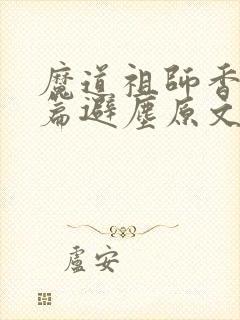 魔道祖師香
篇避塵原文
盧安